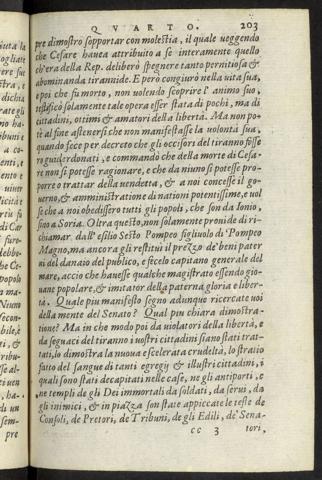 QVARTO. 203
pre dimostro sopportar con molestia, il quale veggendo
che Cesare hauea attribuito a se interamente quello
ch'era della Rep. deliberò spegnere tanto pernitiosa &
abominanda tirannide. E però congiurò nella vita sua,
e poi che fu morto, non uolendo scoprire l'animo suo,
testificò solamente tale opera esser stata di pochi, ma di
cittadini, ottimi & amatori della libertà. Ma non po-
tè al fine astenersi che non manifestasse la uolontà sua,
quando fece per decreto che gli occisori del tiranno fosse
ro guiderdonati, e commandò che della morte di Cesa-
re non si potesse ragionare, e che da niuno si potesse pro-
porre o trattar della vendetta, & a noi concesse il go-
uerno, & amministratione di nationi potentissime, e uol
se che a noi obedissero tutti gli popoli, che son da Ionio,
sino a Soria. Oltra questo, non solamente prouide di ri-
chiamar dall'esilio Sesto Pompeo figliuolo di Pompeo
Magno, ma ancora gli restituì il prezzo de' beni pater
ni del danaio del publico, e fecelo capitano generale del
mare, accio che hauesse qualche magistrato essendo gio-
uane popolare, & imitator della paterna gloria e liber-
tà. Quale piu manifesto segno adunque ricercate uoi
della mente del Senato? Qual piu chiara dimostra-
tione? Ma in che modo poi da uiolatori della libertà, e
da seguaci del tiranno i uostri cittadini siano stati trat-
tati, lo dimostra la nuoua e scelerata crudeltà, lo stratio
fatto del sangue di tanti egregij & illustri cittadini, i
quali sono stati decapitati nelle case, ne gli antiporti, e
ne templi de gli Dei immortali da soldati, da serui, da
gli inimici, & in piazza son state appiccate le teste de
Consoli, de Pretori, de Tribuni, de gli Edili, de' Sena-
cc 3 tori,